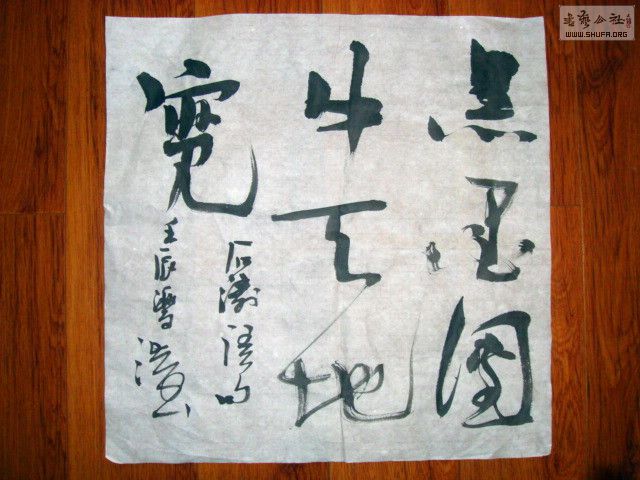 黑墨團
中天地
寬
石濤诗句
壬辰雪
書藝公社
WWW.SHUFA.ORG